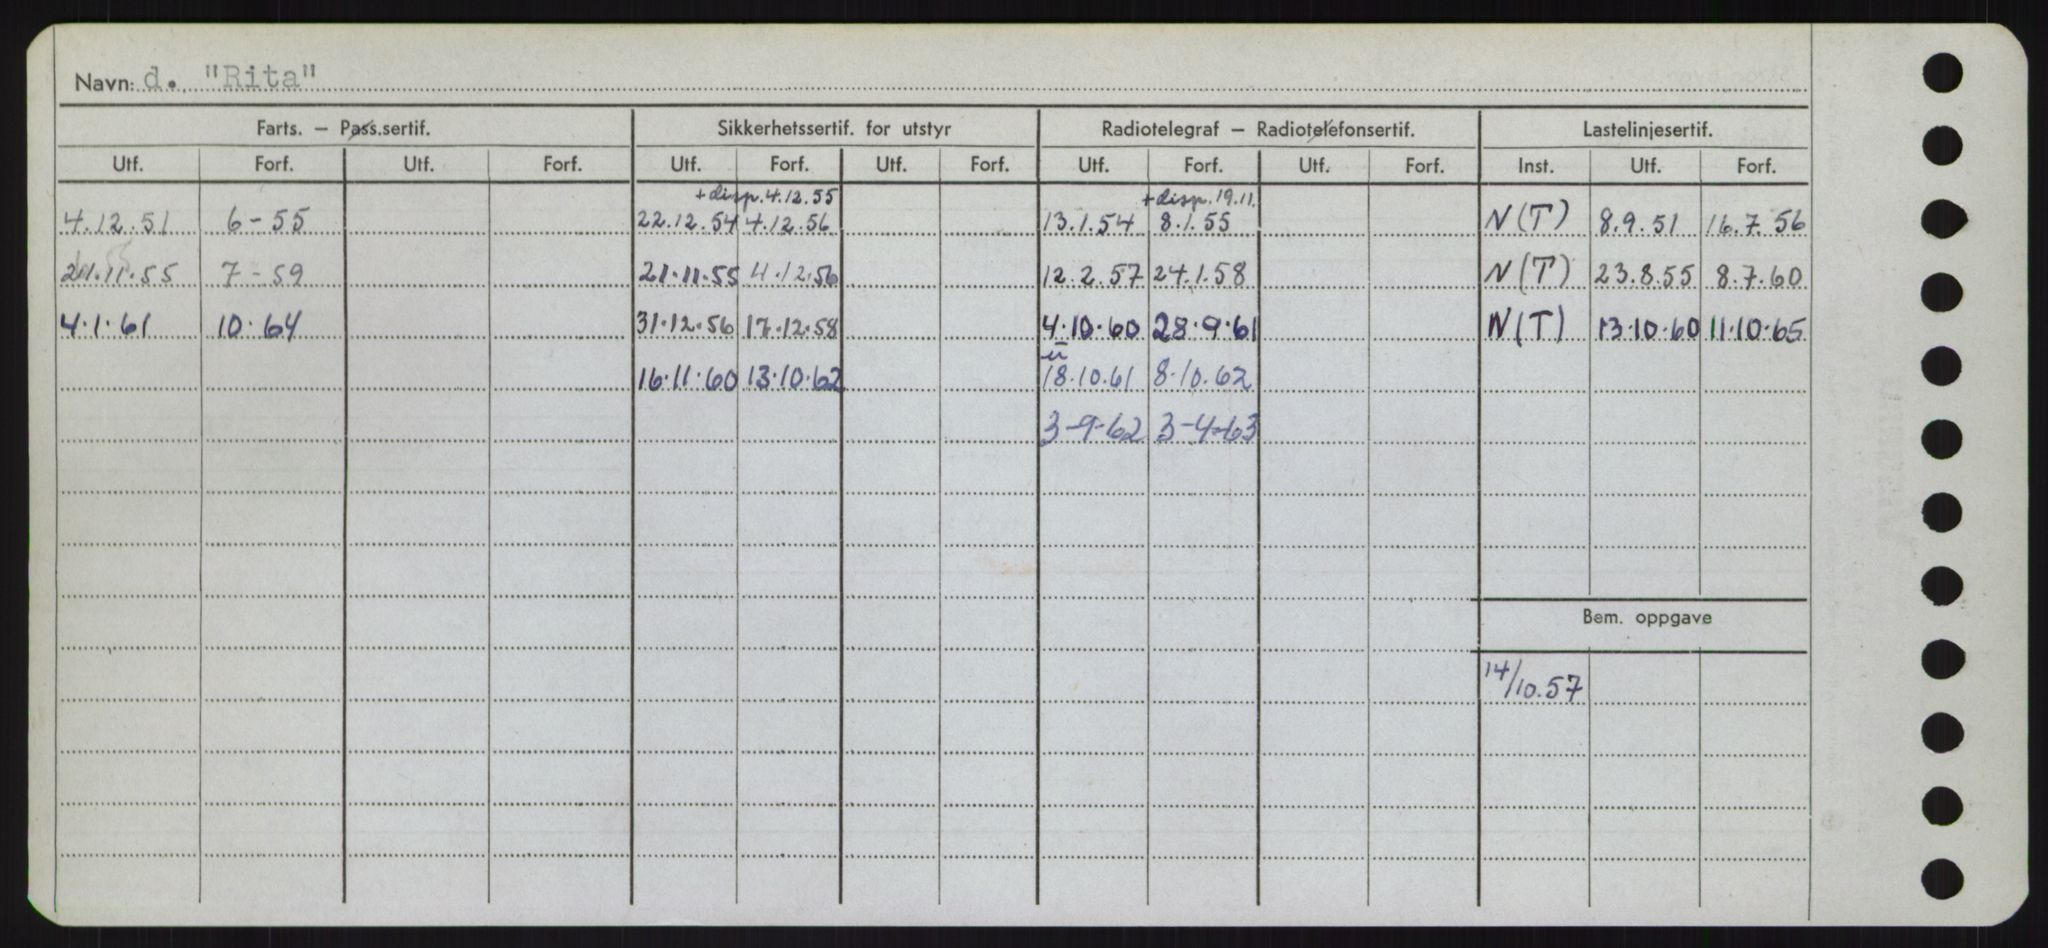 Navn: d. "Rita"
Farts. – Pass.sertif. Sikkerhetssertif. for utstyr Radiotelegraf – Radiotelefonsertif. Lastelinjesertif.
Utf. Forf. Utf. Forf. Utf. Forf. Utf. Forf. Utf. Forf. Utf. Forf. Inst. Utf. Forf.
+disp. 4.12.55 +disp. 19.11.
4.12.51 6-55 22.12.54 4.12.56 13.1.54 8.1.55 N(T) 8.9.51 16.7.56
21.11.55 7-59 21.11.55 4.12.56 12.2.57 24.1.58 N(T) 23.8.55 8.7.60
4.1.61 10.64 31.12.56 17.12.58 4.10.60 28.9.61 N(T) 13.10.60 11.10.65
16.11.60 13.10.62 18.10.61 8.10.62
3-9-62 3-4-63
Bem. oppgave
14/10.57